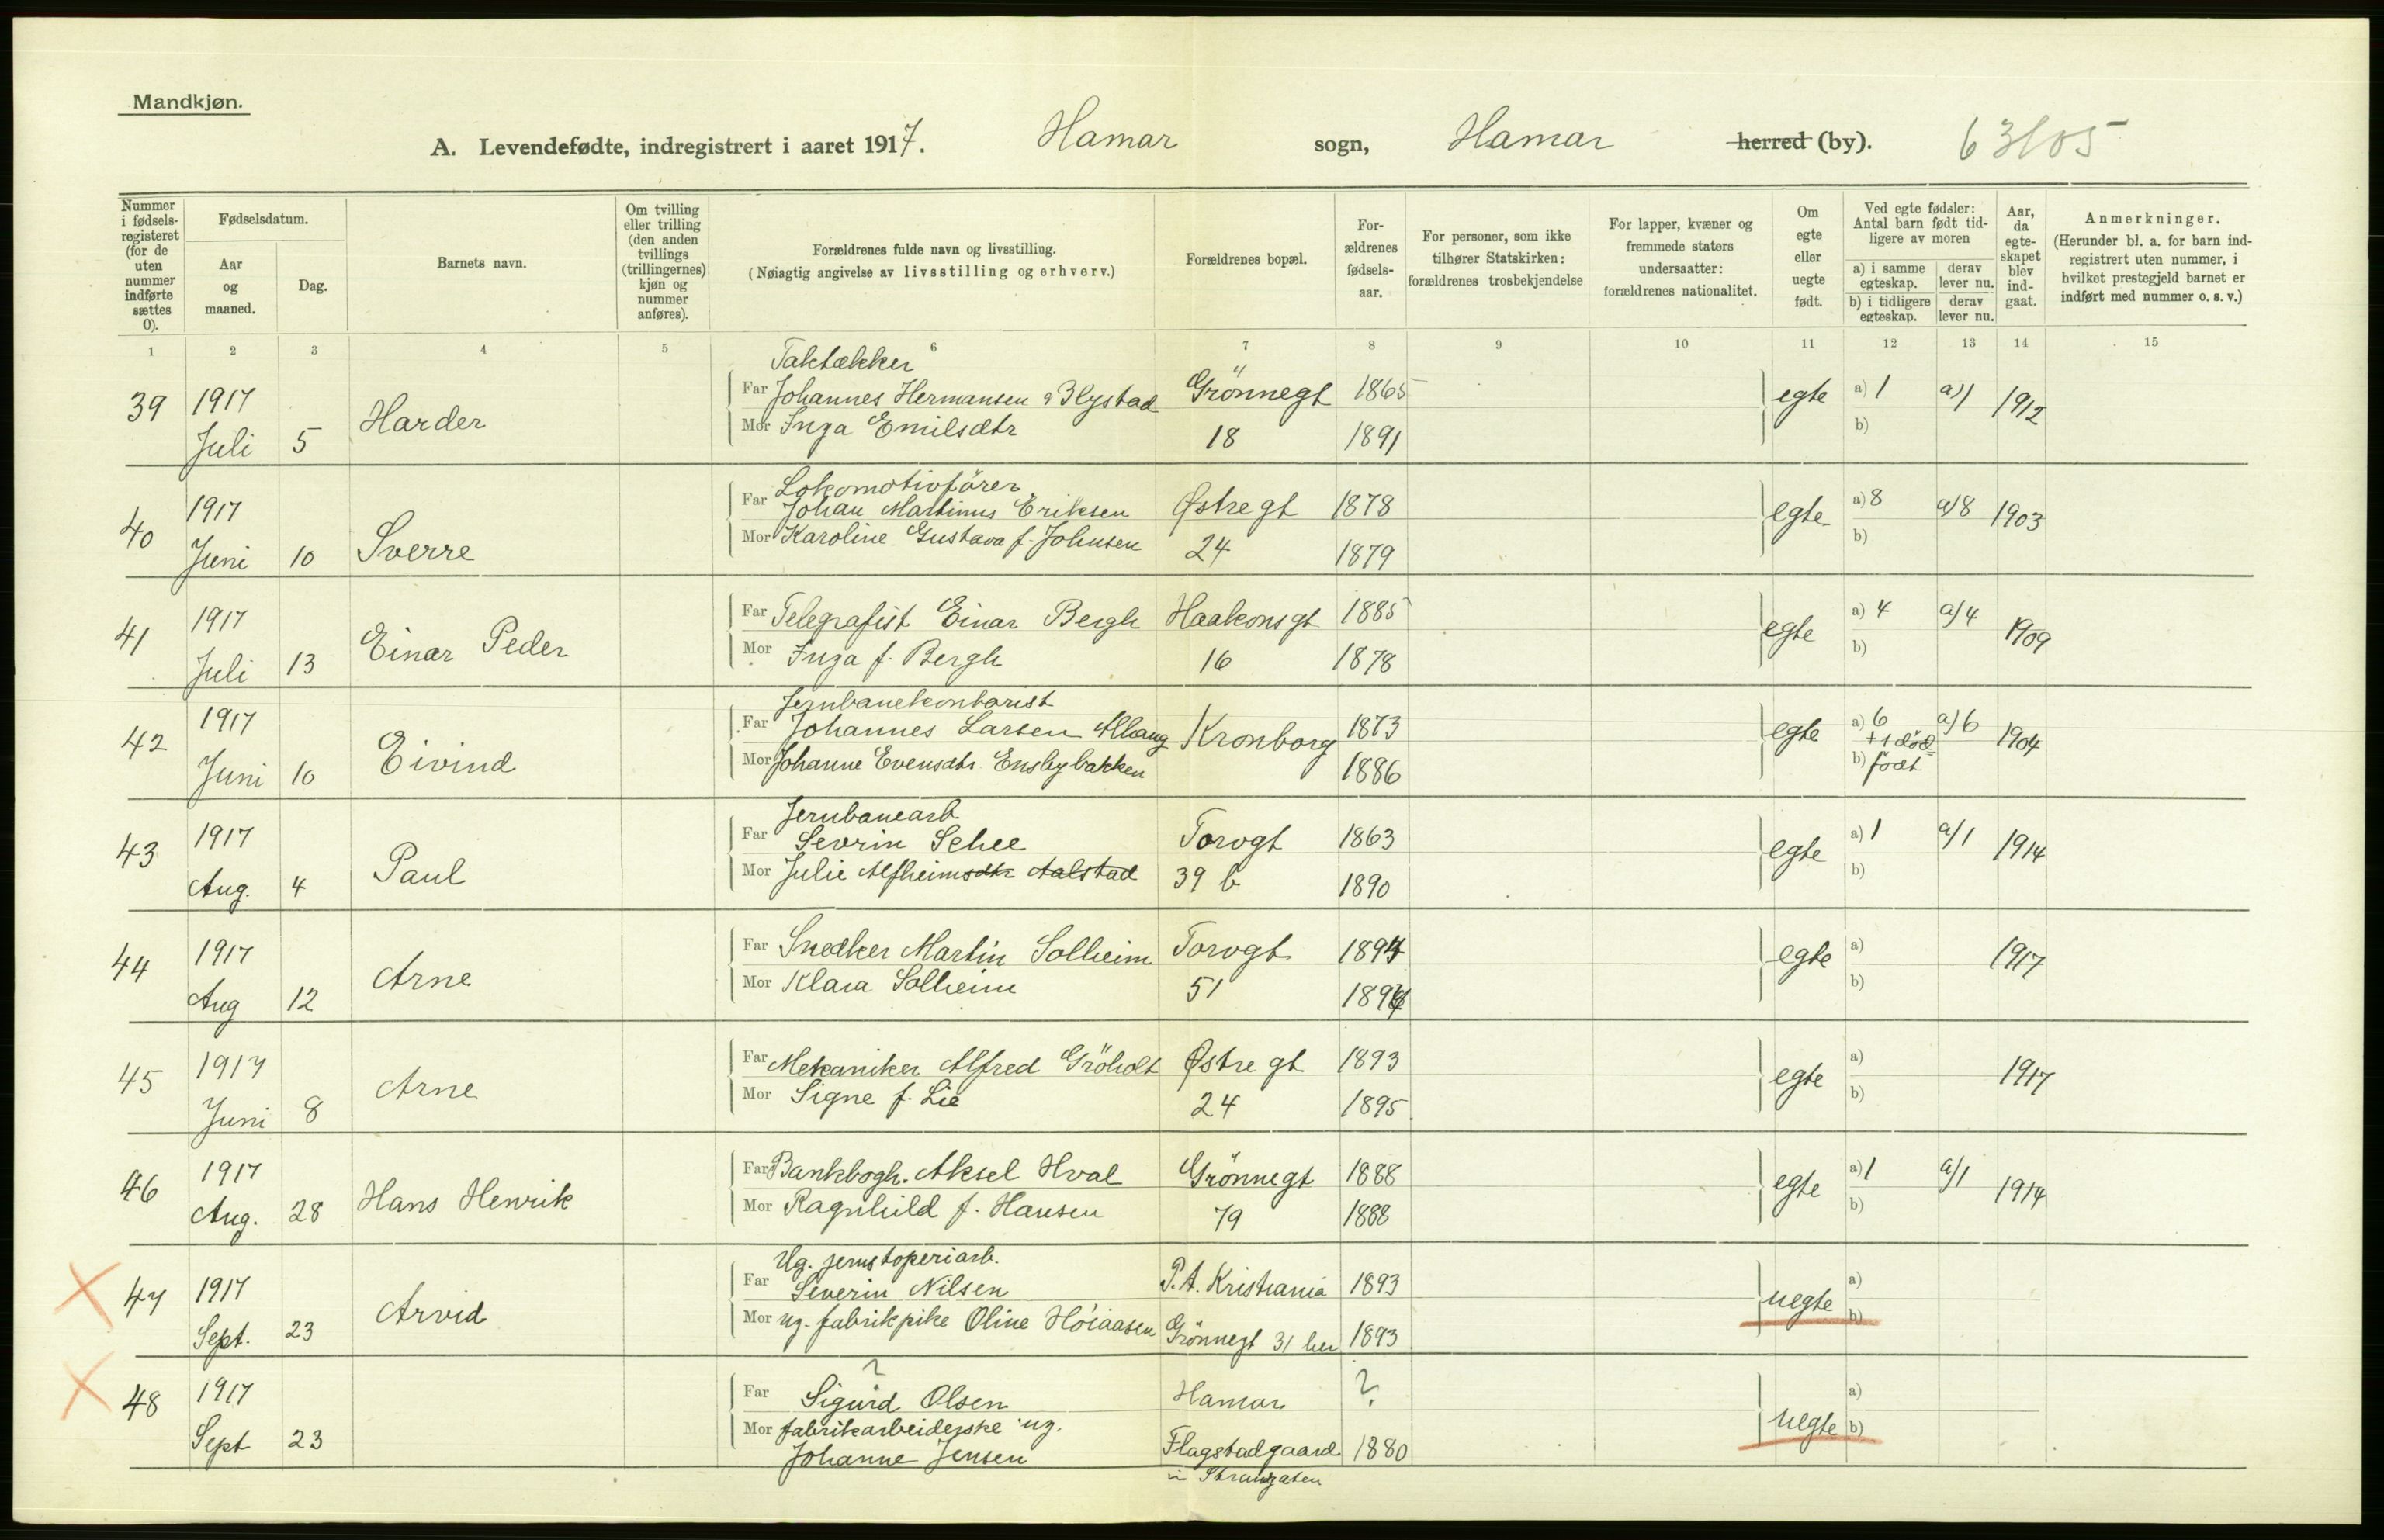 Mandkjøn.
A. Levendefødte, indregistrert i aaret 1917. Hamar sogn, Hamar herred (by).
Nummer i fødsels-registeret (for de uten nummer indførte sættes 0).
Fødselsdatum.
Aar og maaned.
Dag.
Barnets navn.
Om tvilling eller trilling (den anden tvillings (trillingernes) kjøn og nummer anføres).
Forældrenes fulde navn og livsstilling.
(Nøiagtig angivelse av livsstilling og erhverv.)
Forældrenes bopæl.
For-ældrenes fødsels-aar.
For personer, som ikke tilhører Statskirken: forældrenes trosbekjendelse
For lapper, kvæner og fremmede staters undersaatter: forældrenes nationalitet.
Om egte eller uegte født.
Ved egte fødsler: Antal barn født tid-ligere av moren
a) i samme egteskap.
derav lever nu.
b) i tidligere egteskap.
derav lever nu.
Aar, da egte-skapet blev ind-gaat.
Anmerkninger.
(Herunder bl. a. for barn ind-registrert uten nummer, i hvilket prestegjeld barnet er indført med nummer o. s. v.)
1 2 3 4 5 6 7 8 9 10 11 12 13 14 15
Taktækker
39 1917 Far Johannes Hermansen Grönnegt 1865 egte a) 1 a) 1 1912
Juli 5 Harder Mor Inga Emilsdtr 18 1891 b)
Lokomotivförer
40 1917 Far Johan Martinus Eriksen Østregt 1878 egte a) 8 a) 8 1903
Juni 10 Sverre Mor Karoline Gustava f. Johnsen 24 1879 b)
41 1917 Far Telegrafist Einar Bergh Haakonsgt 1885 egte a) 4 a) 4 1909
Juli 13 Einar Peder Mor Inga f. Bergh 16 1878 b)
Jernbanekontorist
42 1917 Far Johannes Larsen Kronborg 1873 egte a) 6 a) 6 1904
+1 död
Juni 10 Eivind Mor Johanne Evensdtr. Ensbybakken 1886 b) födt
Jernbanearb.
43 1917 Far Sevrin Schee Torvgt 1863 egte a) 1 a) 1 1914
Aug. 4 Paul Mor Julie Alfheimsdtr Aalstad 39 b 1890 b)
44 1917 Far Snedker Martin Solheim Torvgt 1894 egte a) 1917
Aug 12 Arne Mor Klara Solheim 51 b)
45 1917 Far Mekaniker Alfred Gröholt Østre gt 1893 egte a) 1917
Juni 8 Arne Mor Signe f. Lie 24 1895 b)
46 1917 Far Bankbogh. Aksel Hval Grönnegt 1888 egte a) 1 a) 1 1914
Aug. 28 Hans Henrik Mor Ragnhild f. Hansen 79 1888 b)
Ug. jernstøperiarb.
47 1917 Far Severin Nilsen P.t. Kristiania 1893 uegte a)
Sept. 23 Arvid Mor ug. fabrikpike Oline Höiaasen Grönnegt 31 her 1893 b)
?
48 1917 Far Sigurd Olsen Hamar ? uegte a)
Sept 23 Mor fabrikarbeiderske ug. b)
Johanne Jensen Flagstadgaard 1880
i Strandgaten